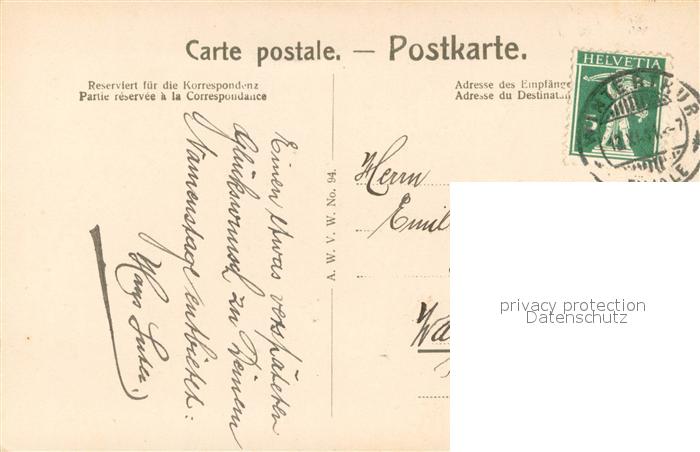 Carte postale. — Postkarte.
Reserviert für die Korrespondenz
Partie réservée à la Correspondance
Adresse des Empfänge
Adresse du Destinat
HELVETIA
WINTERTHUR
Einen etwas verspäteten
Glückwunsch zu Deinem
Namenstage entbietet:
Hans Suter.
A. W. V. W. No. 94.
Herrn
Emil
privacy protection
Datenschutz